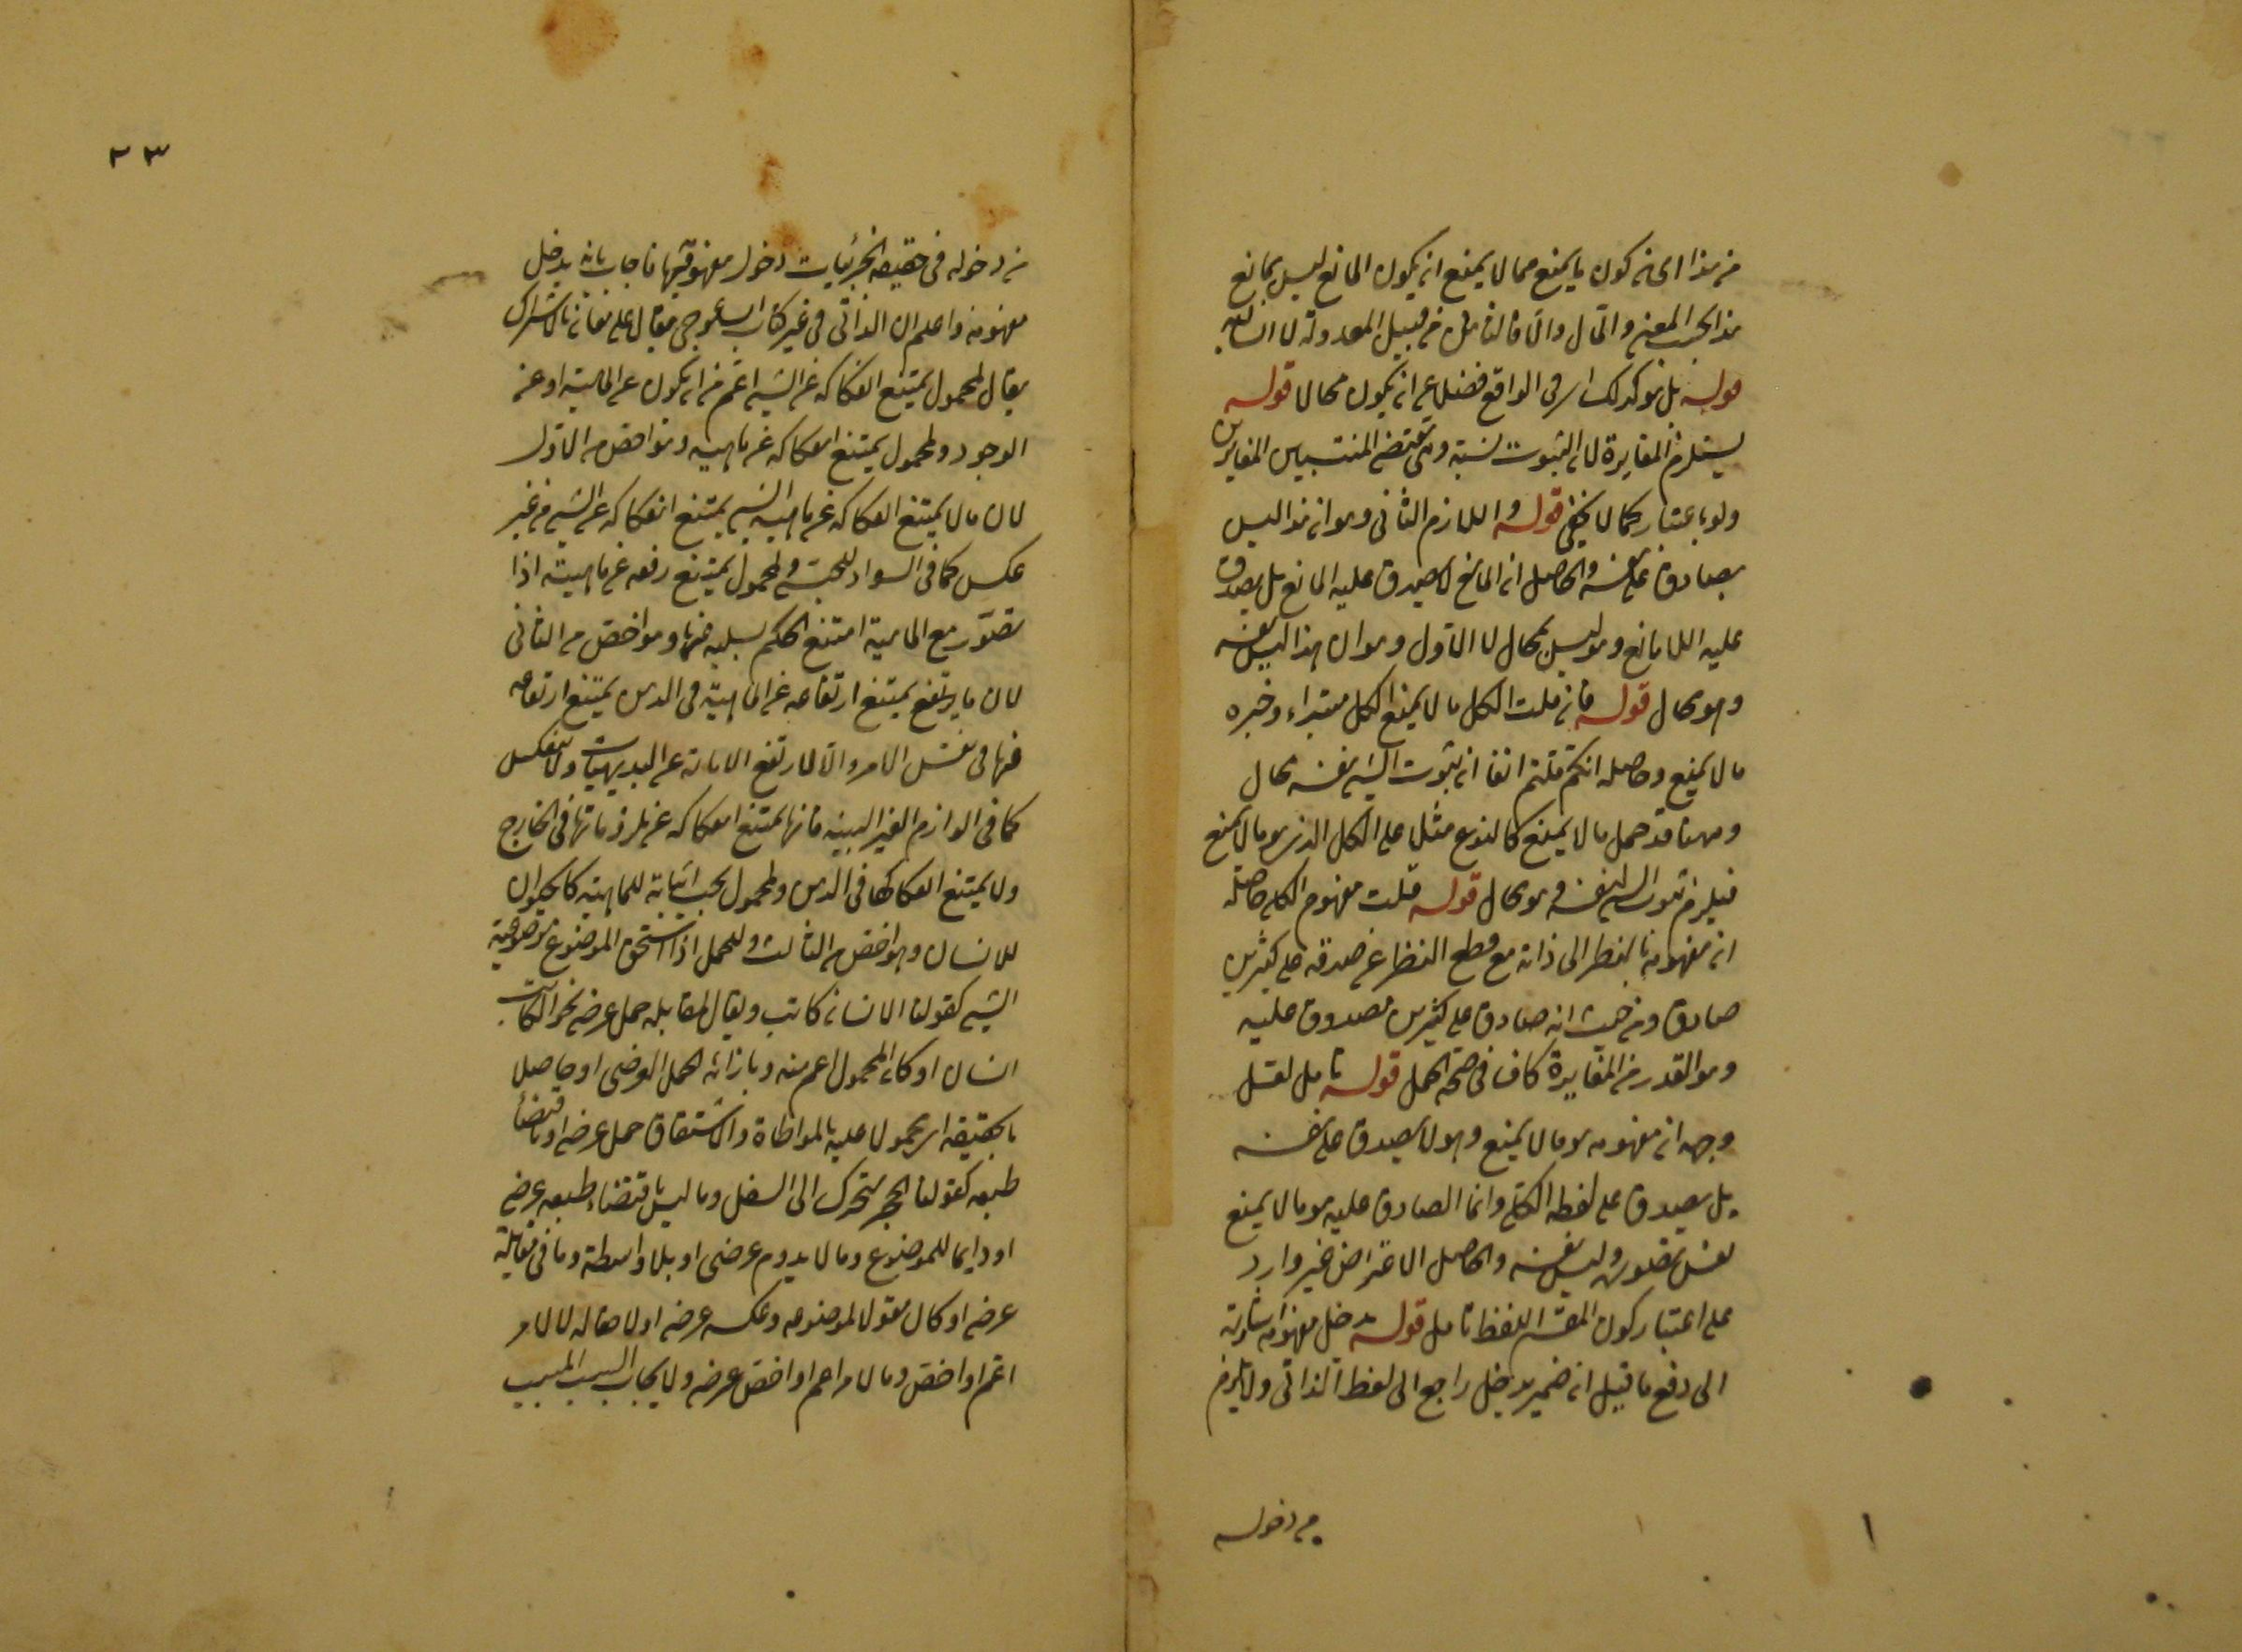 من هذا اى من كون ما يمنع مما لا يمنع ان يكون المانع ليس بمانع
هذا بحسب المعنى والمآل والا فالثانى من قبيل المعدولة لا السالبة
قوله بل هو كذلك اى فى الواقع فضلا عن ان يكون محالا قوله
يستلزم المغايرة لان الثبوت نسبة وهى تقتضى المنتسبين المغايرين
ولو باعتبار كما لا يخفى قوله واللازم الثانى وهو ان هذا ليس
بصادق على نفسه والحاصل ان المانع لا يصدق عليه المانع بل يصدق
عليه اللامانع وهو ليس بمحال لا الاول وهو ان هذا ليس نفسه
وهو محال قوله فان قلت الكلى ما لا يمنع الكلى مبتداء وخبره
ما لا يمنع وحاصله انكم قلتم انفا ان ثبوت الشىء لنفسه محال
وههنا قد حمل ما لا يمنع كالنوع مثلا على الكلى الذى هو ما لا يمنع
فيلزم ثبوت الشىء لنفسه وهو محال قوله قلت مفهوم الكلى حاصله
ان مفهومه بالنظر الى ذاته مع قطع النظر عن صدقه على كثيرين
صادق ومن حيث انه صادق على كثيرين مصدوق عليه
وهو القدر من المغايرة كاف فى صحة الحمل قوله تأمل لعل
وجهه ان مفهومه هو ما لا يمنع وهو لا يصدق على نفسه
بل يصدق على لفظ الكلى وانما الصادق عليه هو ما لا يمنع
نفس تصوره وليس نفسه والحاصل الاعتراض غير وارد
على اعتبار كون المقسم اللفظ تأمل قوله يدخل مفهومه اشارة
الى دفع ما قيل ان ضمير يدخل راجع الى لفظ الذاتى ولا يلزم
من دخوله
من دخوله فى حقيقة الجزئيات دخول مفهومه فيها فاجاب بانه يدخل
مفهومه واعلم ان الذاتى فى غير كتاب ايساغوجى يقال على معان بالاشتراك
يقال لمحمول يمتنع انفكاكه عن الشىء اعم من ان يكون عن الماهية او عن
الوجود ولمحمول يمتنع انفكاكه عن ماهيته وهو اخص من الاول
لان ما لا يمتنع انفكاكه عن ماهية الشىء يمتنع انفكاكه عن الشىء من غير
عكس كما فى السواد للحبشى ولمحمول يمتنع رفعه عن ماهيته اذا
تصور مع الماهية امتنع الحكم بسلبه عنها وهو اخص من الثانى
لان ما يرتفع يمتنع ارتفاعه عن الماهية فى الذهن يمتنع ارتفاعه
عنها فى نفس الامر والا لارتفع الامان عن البديهيات ولا ينعكس
كما فى اللوازم الغير البينة فانها يمتنع انفكاكه عن ملزوماتها فى الخارج
ولا يمتنع انفكاكها فى الذهن ولمحمول يجب اثباته للماهية كالحيوان
للانسان وهو اخص من الثالث وللحمل اذا استحق الموضوع موضوعية
الشىء كقولنا الانسان كاتب ويقال لمقابله حمل عرضى نحو الكاتب
انسان او كان المحمول اعم منه وبازائه الحمل العرضى او حاصلا
بالحقيقة اى محمولا عليه بالمواطاة والاشتقاق حمل عرضى او باقتضاء
طبعه كقولنا الحجر متحرك الى السفل وما ليس باقتضاء طبعه عرضى
او دايما للموضوع وما لا يدوم عرضى او بلا واسطة وما فى مقابلته
عرضى او كان مقولا لموضوعه وعكسه عرضى او لاحقا له لا لامر
اعم او اخص وما لامر اعم او اخص عرضى ولايجاب السبب المسبب
٢٣